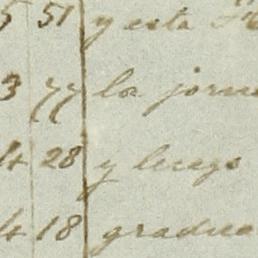 5 51 y esta
3 77 la jorn
4 28 y luego
4 18 gradua